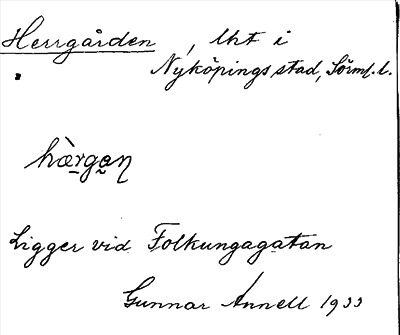 Herrgården, lht i
Nyköpings stad, Sörml. l.
hàrgan
Ligger vid Folkungagatan
Gunnar Annell 1933